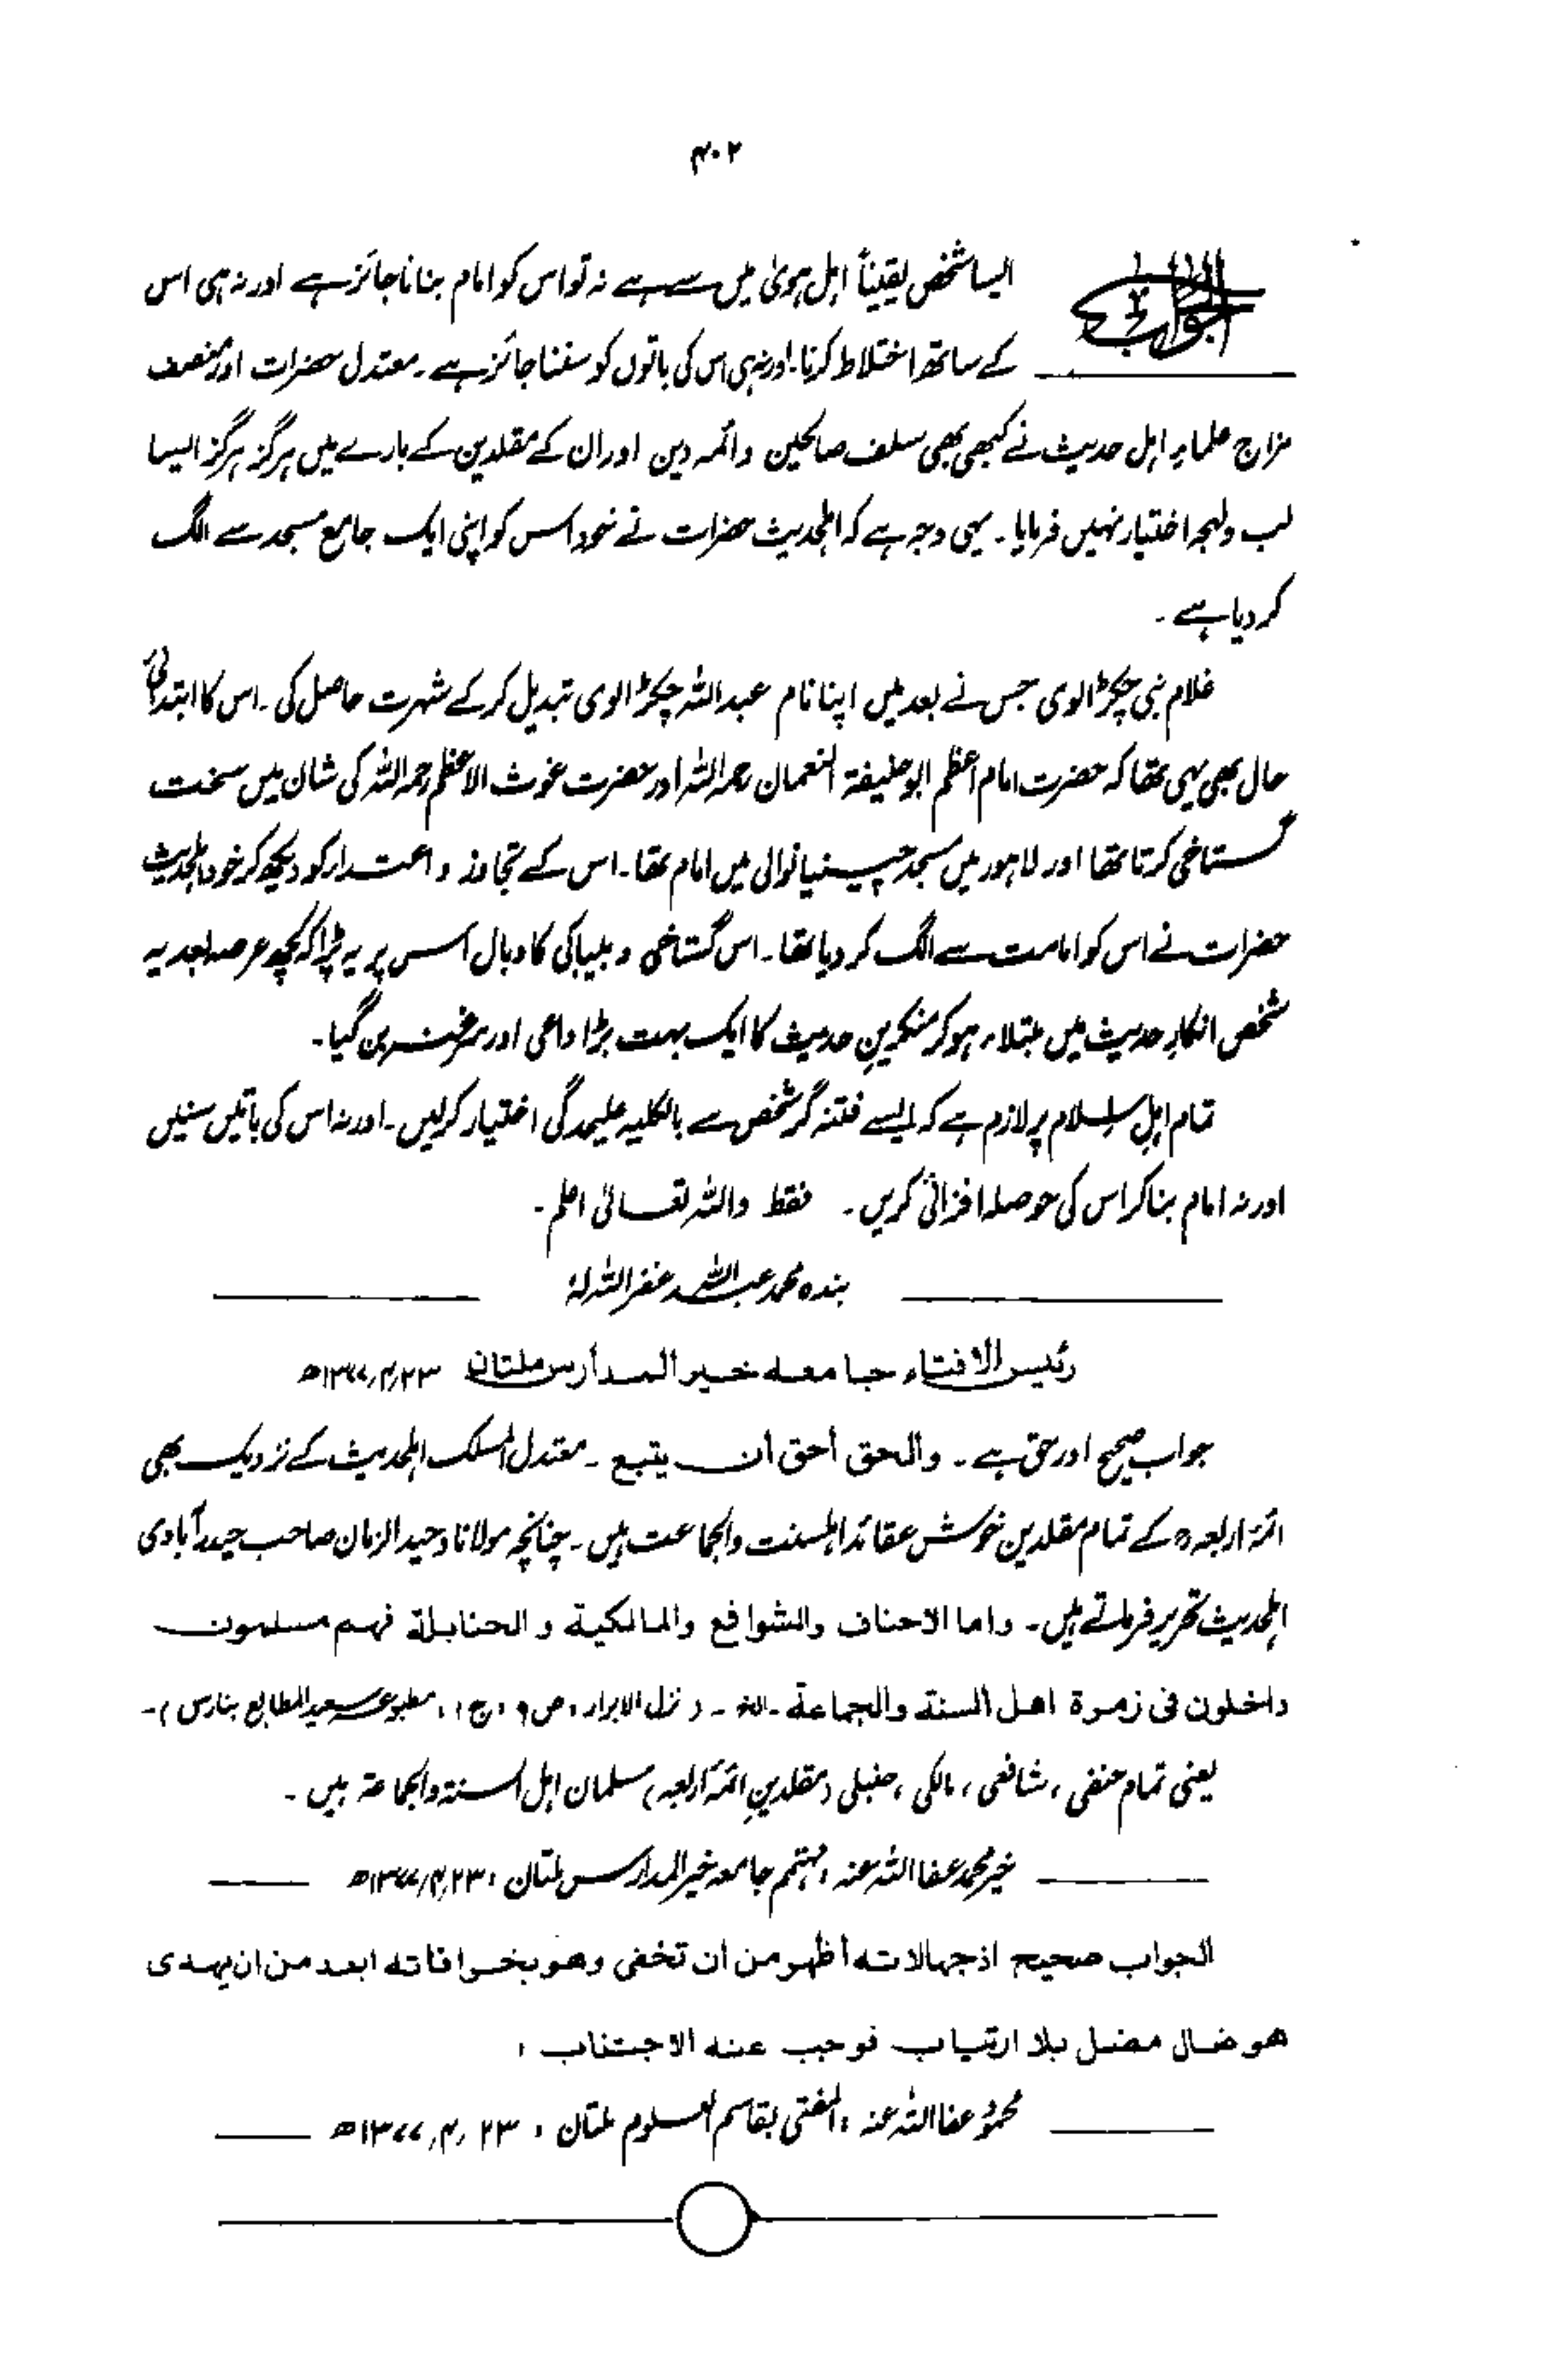 ۴۰۲
الجواب
ایسا شخص یقیناً اہل ہویٰ میں سے ہے نہ تو اس کو امام بنانا جائز ہے اور نہ ہی اس
کے ساتھ اختلاط کرنا۔ اور نہ ہی اس کی باتوں کو سننا جائز ہے۔ معتدل حضرات اور منصف
مزاج علماءِ اہل حدیث نے کبھی بھی سلف صالحین وائمہ دین اور ان کے مقلدین کے بارے میں ہرگز ہرگز ایسا
لب ولہجہ اختیار نہیں فرمایا۔ یہی وجہ ہے کہ اہلحدیث حضرات نے خود اس کو اپنی ایک جامع مسجد سے الگ
کر دیا ہے۔
غلام نبی چکڑالوی جس نے بعد میں اپنا نام عبداللہ چکڑالوی تبدیل کر کے شہرت حاصل کی۔ اس کا ابتدائی
حال بھی یہی تھا کہ حضرت امام اعظم ابوحلیفۃ النعمان رحمہ اللہ اور حضرت غوث الاعظم رحمہ اللہ کی شان میں سخت
گستاخی کرتا تھا اور لاہور میں مسجد چینیانوالی میں امام تھا۔ اس کے تجاوز واعتدار کو دیکھ کر خود اہلحدیث
حضرات نے اس کو امامت سے الگ کر دیا تھا۔ اس گستاخی و بیباکی کا وبال اس پر یہ پڑا کہ کچھ عرصہ بعد یہ
شخص انکارِ حدیث میں مبتلاء ہو کر منکرینِ حدیث کا ایک بہت بڑا داعی اور سرغنہ بن گیا۔
تمام اہلِ اسلام پر لازم ہے کہ ایسے فتنہ گر شخص سے بالکلیہ علیحدگی اختیار کرلیں۔ اور نہ اس کی باتیں سنیں
اور نہ امام بنا کر اس کی حوصلہ افزائی کریں۔ فقط واللہ تعالیٰ اعلم۔
بندہ محمد عبداللہ غفراللہ لہٗ
رئیس الافتاء جامعہ خیر المدارس ملتان ۲۳؍۴؍۱۳۷۷ھ
جواب صحیح اور حق ہے۔ والحق أحق أن يتبع۔ معتدل المسلک اہلحدیث کے نزدیک بھی
ائمہ اربعہؒ کے تمام مقلدین خوش عقائد اہلسنت والجماعت ہیں۔ چنانچہ مولانا وحید الزمان صاحب حیدرآبادی
اہلحدیث تحریر فرماتے ہیں۔ واما الاحناف والشوافع والمالكية والحنابلة فهم مسلمون
داخلون فی زمرة اهل السنة والجماعة۔ الخ۔ (نزل الابرار، ص۹، ج۱، مطبوعہ سعید المطابع بنارس)۔
یعنی تمام حنفی، شافعی، مالکی، حنبلی (مقلدینِ ائمہ اربعہ) مسلمان اہل السنۃ والجماعۃ ہیں۔
خیر محمد عفا اللہ عنہ، مہتمم جامعہ خیر المدارس ملتان، ۲۳؍۴؍۱۳۷۷ھ
الجواب صحيح اذ جهالاته أظهر من أن تخفى وهو بخرافاته ابعد من ان يهدى
هو ضال مضل بلا ارتياب فوجب عنه الاجتناب،
محمود عفا اللہ عنہ، المفتی بقاسم العلوم ملتان، ۲۳؍۴؍۱۳۷۷ھ